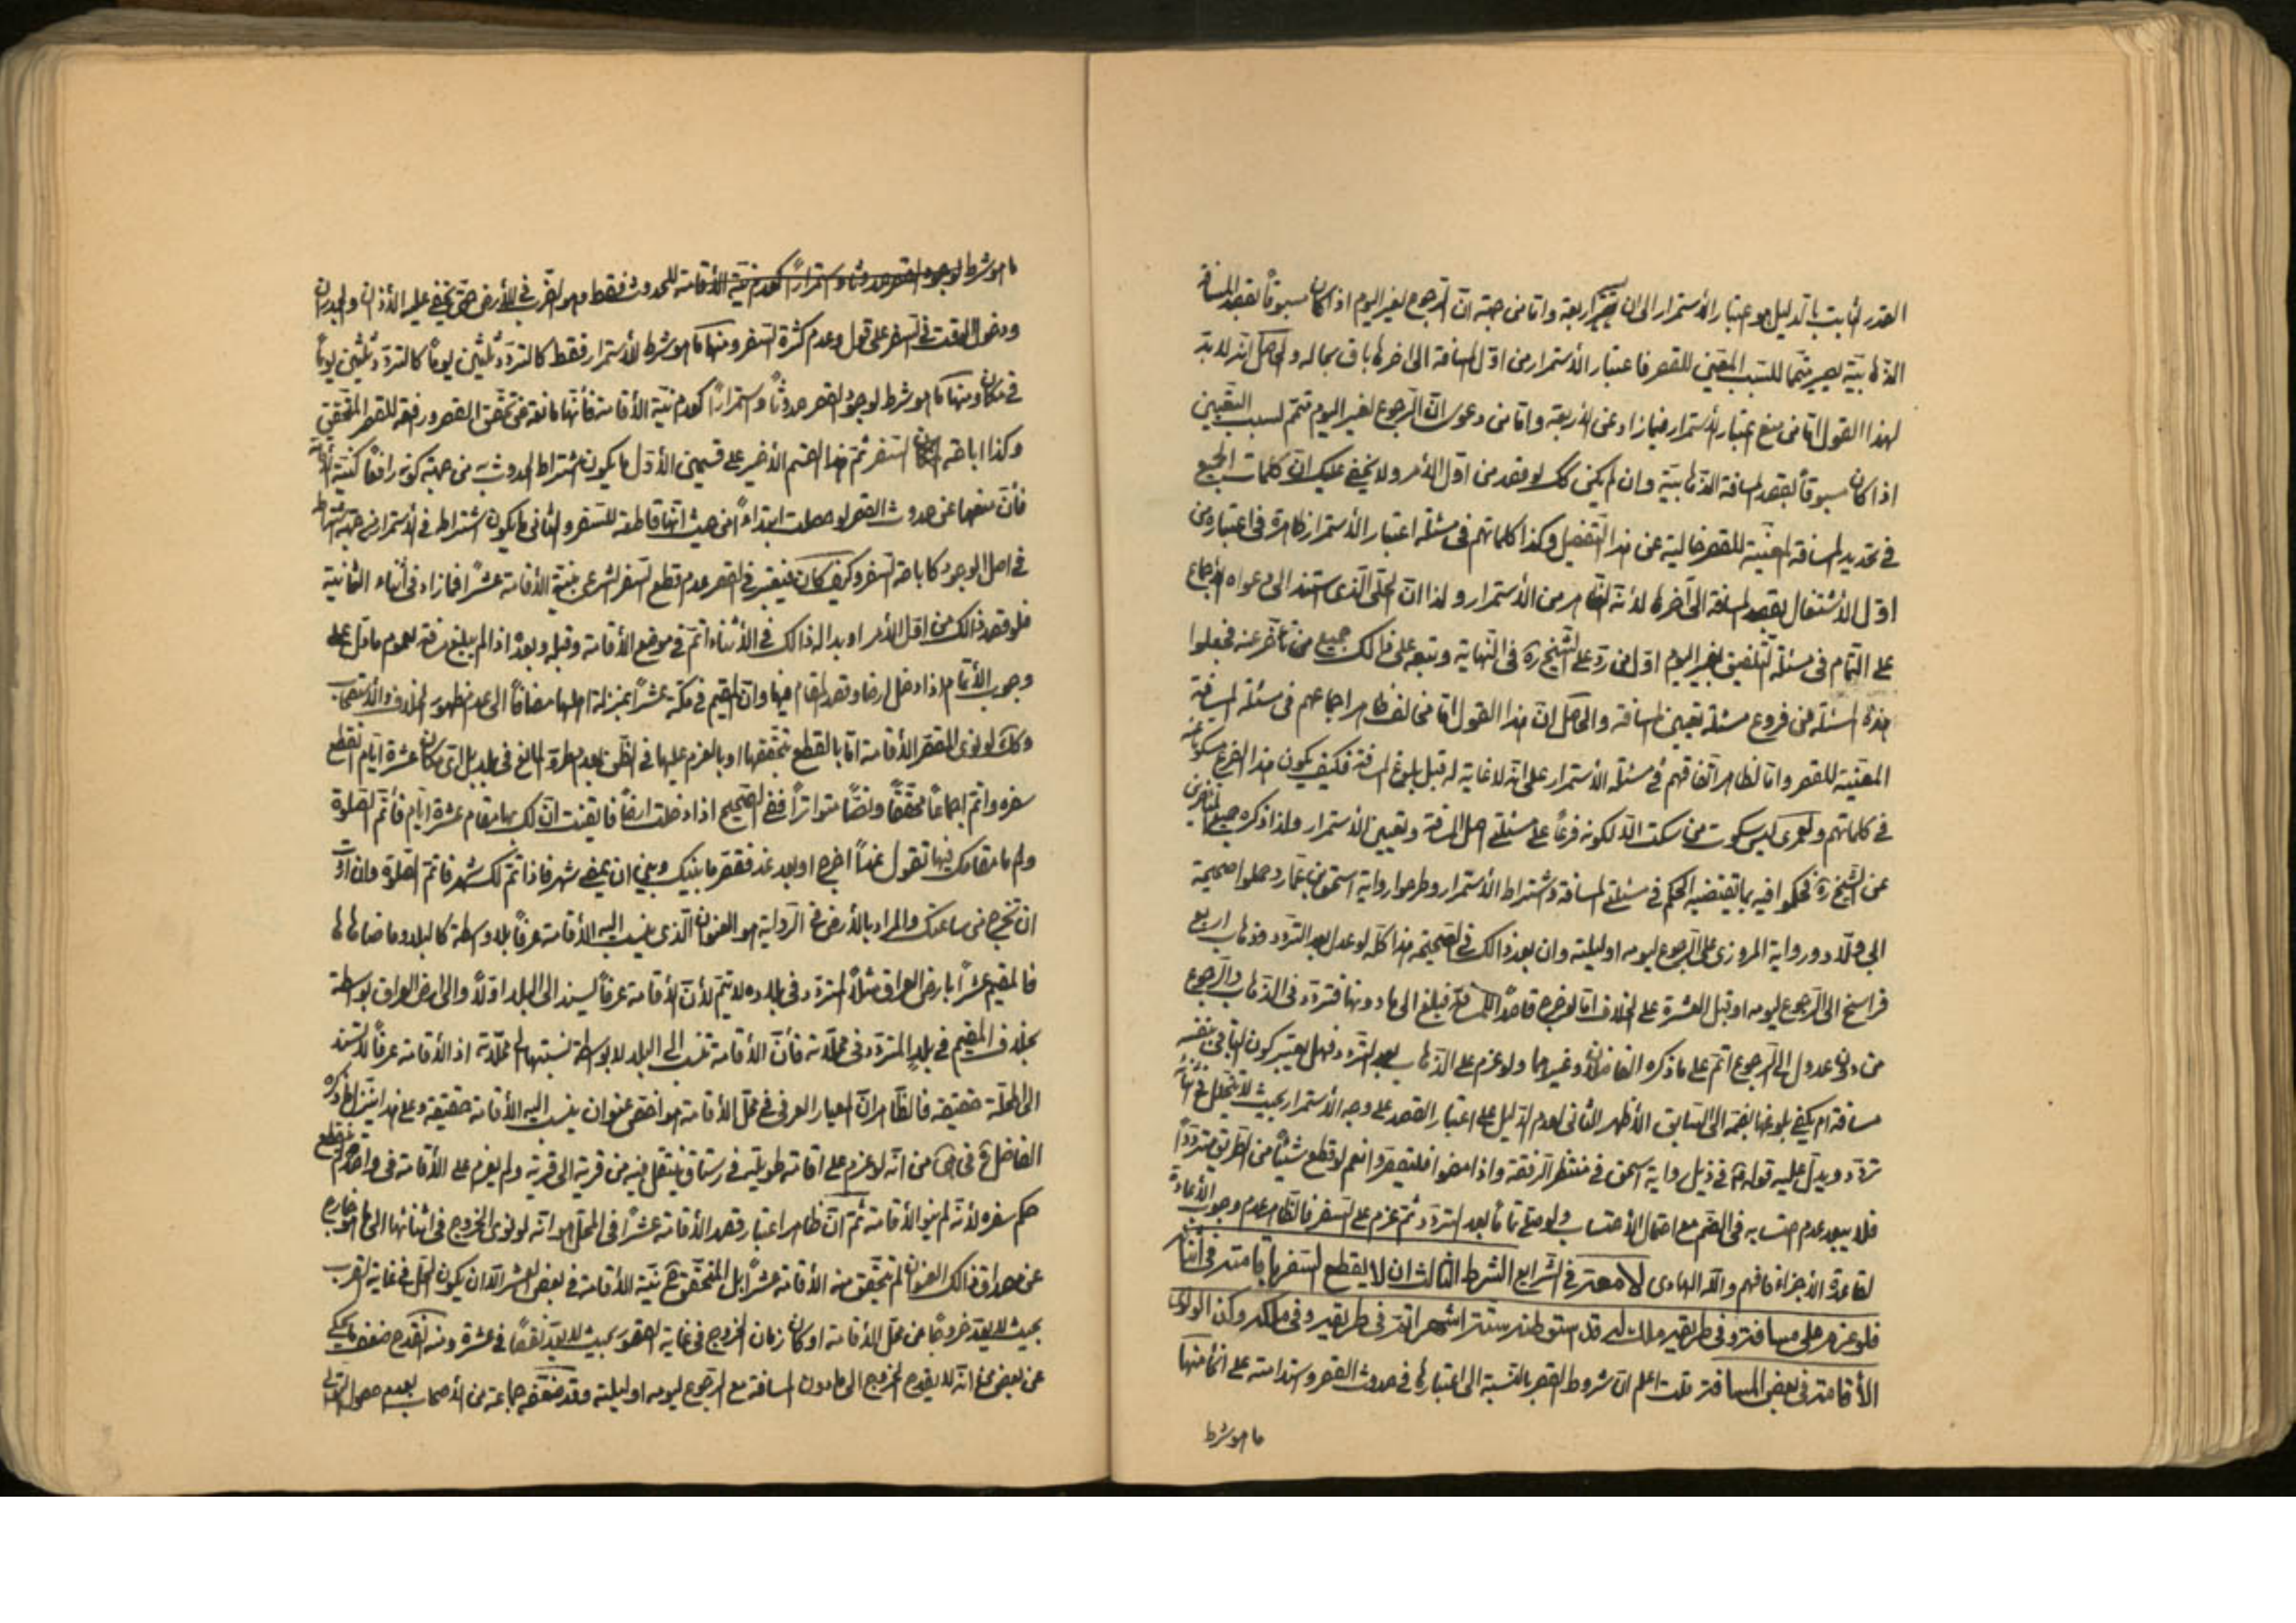 القدر الثابت بالدليل هو اعتبار الاستمرار الى ان يتم اربعة واما من جهة ان الرجوع لغير اليوم اذا كان مسبوقاً بقصد المسافة
الذهابيّة يصير متمّما للسبب المقتضي للقصر فاعتبار الأستمرار من اوّل المسافة الى اخرها باق بحاله والحاصل انه لا بدّ
لهذا القول اما من منع اعتبار الاستمرار فيما زاد عن الاربعة واما من دعوى انّ الرجوع لغير اليوم متمّم لسبب التقصير
اذا كان مسبوقاً بقصد المسافة الذهابيّة وان لم يكن كك لو قصد من اوّل الأمر ولا يخفى عليك انّ كلمات الجميع
في تحديد المسافة المعتبرة للقصر خالية عن هذا التفصيل وكذا كلماتهم في مسئلة اعتبار الأستمرار ظاهرة في اعتباره من
اوّل الأشتغال بقصد المسافة الى آخرها لأنه الظاهر من الأستمرار ولذا انّ الحلّي الذي استند الى دعواه الإجماع
على التمام في مسئلة التلفيق لغير اليوم اوّل من ردّ على الشيخ ره في النهاية وتبعه على ذالك جميع من تأخر عنه فجعلوا
هذه المسئلة من فروع مسئلة تعيين المسافة والحاصل انّ هذا القول اما مخالف لظاهر اجماعهم في مسئلة المسافة
المعتبرة للقصر واما لظاهر اتفاقهم في مسئلة الأستمرار على انه لا غاية له قبل بلوغ المسافة فكيف يكون هذا الفرع مسكوتاً عنه
في كلماتهم ولعمري ليس سكوت من سكت الّا لكونه فرعاً على مسئلتي اصل المسافة وتعيين الأستمرار ولذا ذكره جميع المتأخرين
عن الشيخ ره فحكموا فيه بما يقتضيه الحكم في مسئلتي المسافة واشتراط الأستمرار وطرحوا رواية اسحق بن عمار وحملوا صحيحة
ابي ولّاد ورواية المروزي على الرجوع ليومه او ليلته وان بعد ذالك في الصحيحة هذا كلّه لو عدل بعد التردد وذهاب اربع
فراسخ الى الرجوع ليومه او قبل العشرة على الخلاف اما لو خرج قاصداً للمسافة فبلغ الى ما دونها فتردّد في الذهاب والرجوع
من دون عدول الى الرجوع اتمّ على ما ذكره الفاضلان وغيرهما ولو عزم على الذهاب بعد التردد فهل يعتبر كون الباقي بنفسه
مسافة ام يكفي بلوغها بضمه الى السابق الأظهر الثاني لعدم الدليل على اعتبار القصد على وجه الأستمرار بحيث لا يتخلل في اثنائه
تردّد ويدلّ عليه قوله ع في ذيل رواية اسحق في منتظر الرفقة واذا مضوا فليقصروا نعم لو قطع شيئاً من الطريق متردّداً
فلا يبعد عدم احتسابه في الضم مع احتمال الأحتساب ولو صلى تماماً بعد التردّد ثمّ عزم على السفر فالظاهر عدم وجوب الأعادة
لقاعدة الأجزاء فافهم والله الهادي لا معة في الشرايع الشرط الثالث ان لا يقطع السفر باقامته في اثنائه
فلو عزم على مسافة وفي طريقه ملك له قد استوطنه ستة اشهر اتم في طريقه وفي ملكه وكذا لو نوى
الأقامة في بعض المسافة قلت اعلم انّ شروط القصر بالنسبة الى اعتبارها في حدوث القصر واستدامته على اقسام منها
ما هو شرط
ما هو شرط لوجود القصر حدوثاً واستمراراً كعدم نيّة الأقامة للحدوث فقط وهو الضرب في الأرض حتى يخفى عليه الأذان والجدران
ودخول الوقت في السفر على قول وعدم كثرة السفر ومنها ما هو شرط للأستمرار فقط كالتردّد ثلثين يوماً كالتردّد ثلثين يوماً
في مكان ومنها ما هو شرط لوجود القصر حدوثاً واستمراراً كعدم نيّة الأقامة فأنها مانعة عن تحقق القصر ورافعة للقصر المتحقق
وكذا اباحة السفر ثم هذا القسم الأخير على قسمين الأوّل ما يكون اشتراط الحدوث به من جهة كونه رافعاً كنيّة الأقامة
فأنّ منعها عن حدوث القصر لو حصلت ابتداءً من حيث انّها قاطعة للسفر والثاني ما يكون اشتراطه في الأستمرار من جهة اشتراطه
في اصل الوجود كاباحة السفر وكيف كان فيعتبر في القصر عدم قطع السفر الشرعي بنيّة الأقامة عشراً فما زاد في أثناء الثمانية
فلو قصد ذالك من اوّل الأمر او بدا له ذالك في الأثناء اتمّ في موضع الأقامة وقبله وبعده اذا لم يبلغ مسافة لعموم ما دل على
وجوب الأتمام اذا دخل ارضا وقصد المقام فيها وان المقيم في مكّة عشراً بمنزلة اهلها مضافاً الى عدم ظهور الخلاف والأستصحاب
وكك لو نوى المقصر الأقامة امّا بالقطع بتحققها او بالعزم عليها في الظن بعدم طروّ المانع في بلد بل اي مكان عشرة ايّام انقطع
سفره واتمّ اجماعاً محققاً ونصّاً متواتراً ففي الصحيح اذا دخلت ارضاً فايقنت انّ لك بها مقام عشرة ايّام فأتمّ الصلوة
ولم ما مقامك فيها تقول غداً اخرج او بعد غد فقصّر ما بينك وبين ان يمضي شهر فاذا تمّ لك شهر فاتمّ الصلوة وان اردت
ان تخرج من ساعتك والمراد بالأرض في الرواية هو العنوان الّذي ينسب اليه الأقامة عرفاً بلا واسطة كالبلد وما ضاهاها
فالمقيم عشراً بارض العراق مثلاً المتردّد في بلاده لا يتمّ لأنّ الأقامة عرفاً يسند الى البلد اوّلاً والى ارض العراق بواسطة
بخلاف المقيم في بلد المتردد في محلّاته فأنّ الأقامة تنسب الى البلد لا بواسطة نسبتها الى محلّاته اذ الأقامة عرفاً لا تستند
الى المحلّة حقيقة فالظاهر انّ المعيار العرفي في محلّ الأقامة هو اخصّ عنوان ينسب اليه الأقامة حقيقة وعلى هذا ينزل ما ذكره
الفاضل ره في هى من انّه لو عزم على اقامة طويلة في رستاق ينتقل فيه من قرية الى قرية ولم يعزم على الأقامة في واحدة لم ينقطع
حكم سفره لأنّه لم ينو الأقامة ثمّ انّ ظاهر اعتبار قصد الأقامة عشراً في المحلّ هو انّه لو نوى الخروج في اثنائها الى ما هو خارج
عن مصداق ذالك العنوان لم يتحقق منه الأقامة عشراً بل المتحقق ح نيّة الأقامة في بعض العشر الّا ان يكون المحلّ في غاية القرب
بحيث لا يعدّ خروجاً عن محل الأقامة او كان زمان الخروج في غاية القصر بحيث لا يعدّ نقصاً في عشرة ومنه انقدح ضعف ما يحكى
عن بعض مع انّه لا يقدح الخروج الى ما دون المسافة مع الرجوع ليومه او ليلته وقد ضعّفه جماعة من الأصحاب بعدم